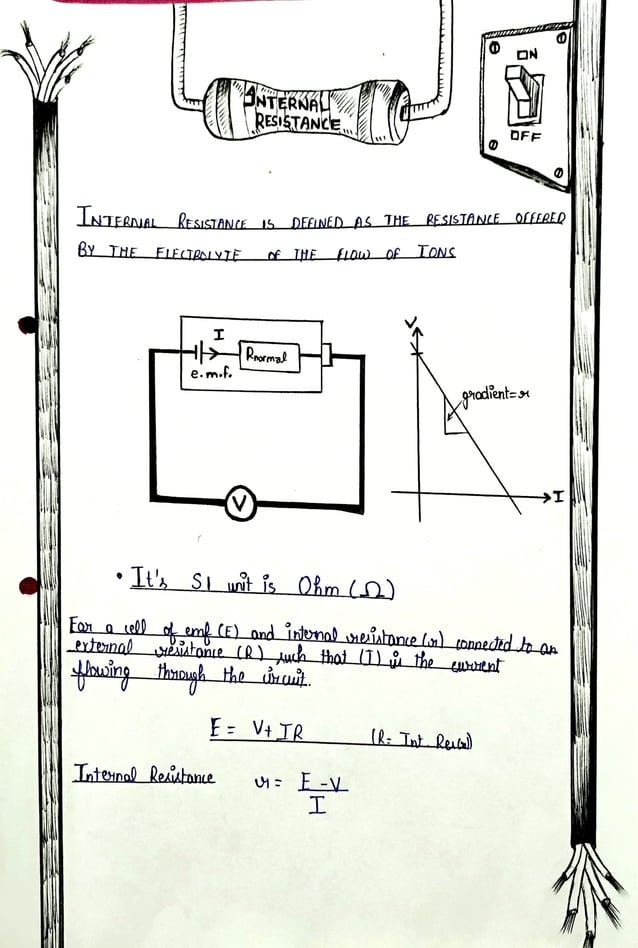 INTERNAL
RESISTANCE
ON
OFF
INTERNAL RESISTANCE IS DEFINED AS THE RESISTANCE OFFERED
BY THE ELECTROLYTE OF THE FLOW OF IONS
I
Rnormal
e.m.f.
V
V
gradient=r
I
• It's SI unit is Ohm (Ω)
For a cell of emf (E) and internal resistance (r) connected to an
external resistance (R) such that (I) is the current
flowing through the circuit.
E = V+ IR (R= Int. Res(r))
Internal Resistance r = E-V
I